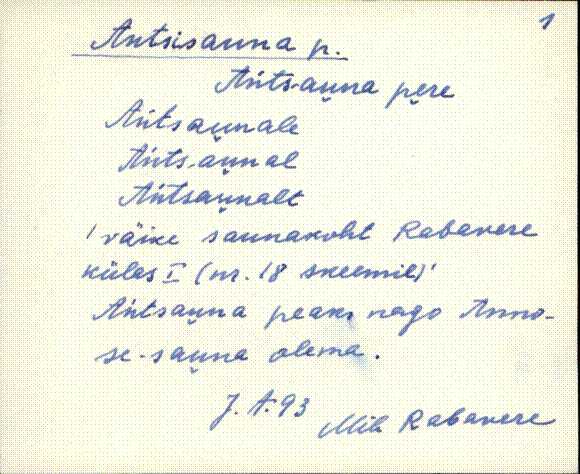 1
Antsisauna p.
Ańtsau̬na pe̬re
Ańtsau̬nale
Ańtsau̬nal
Ańtsau̬nalt
'väike saunakoht Rabavere
külas I (nr. 18 skeemil)'
Ańtsau̬na peaks nago Anno-
se-sau̬na olema.
J. A. 93
Mih Rabavere